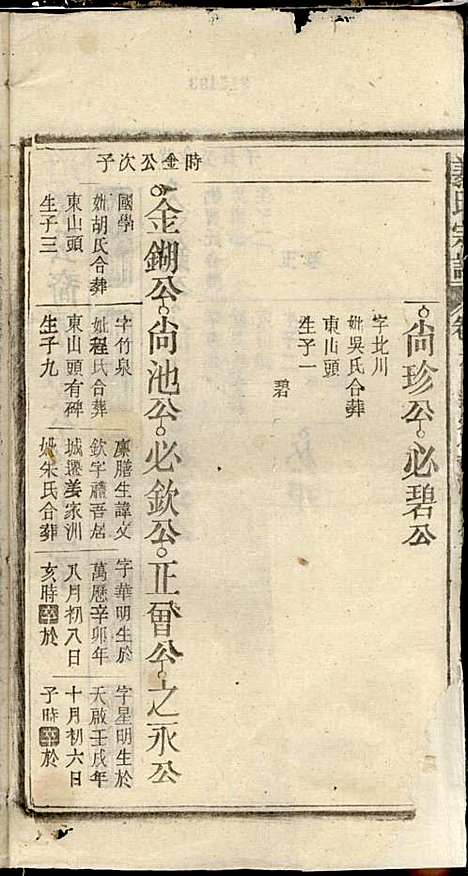 尙珍公 必碧公
字北川
妣吳氏合葬
東山頭
生子一
碧
時金公次子
金鋤公 尙池公 必欽公 正晉公 之永公
國學
妣胡氏合葬
東山頭
生子三
字竹泉
妣程氏合葬
東山頭有碑
生子九
廩膳生諱文
欽字禮吾居
城遷姜家洲
妣朱氏合葬
字華明生於
萬歷辛卯年
八月初八日
亥時卒於
字星明生於
天啟壬戌年
十月初六日
子時卒於